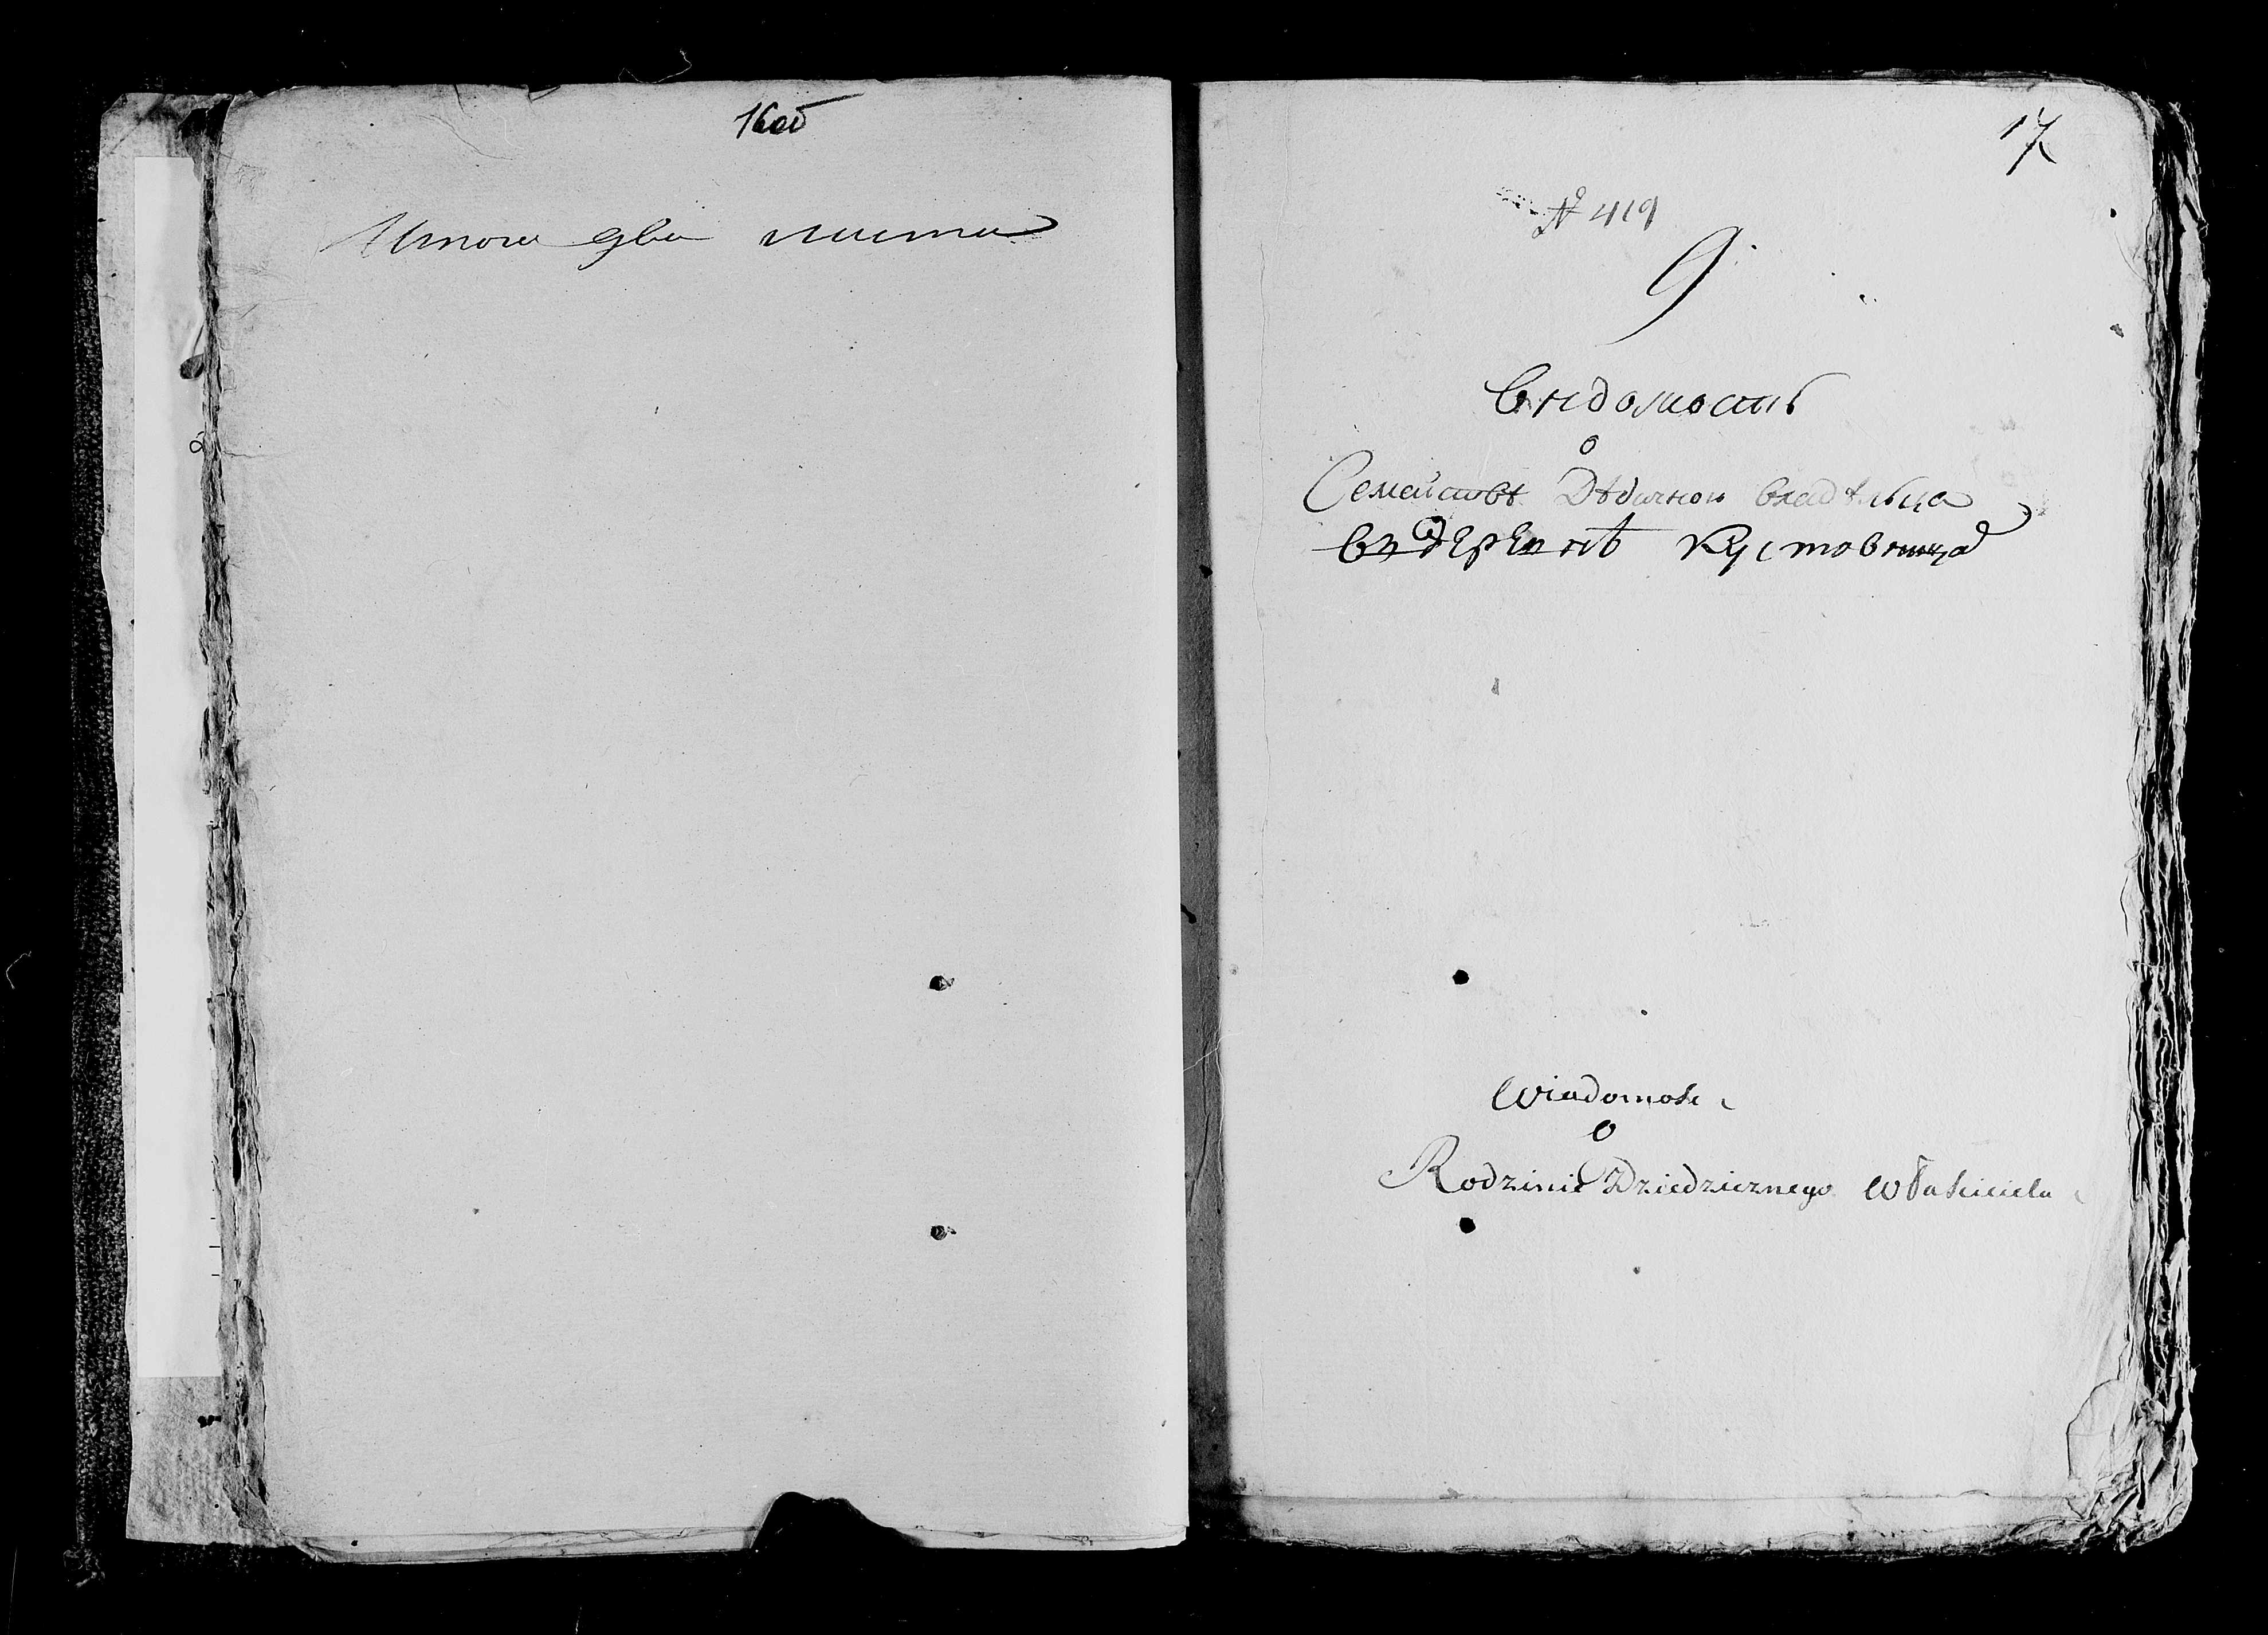 16об
Итого два листа
17
№ 419
9
Вѣдомость
о
Семействѣ Дѣдичного владѣльца
въ дерЕвнѣ Кустовница
Wiadomość
o
Rodzinie Dziedzicznego Właściciela